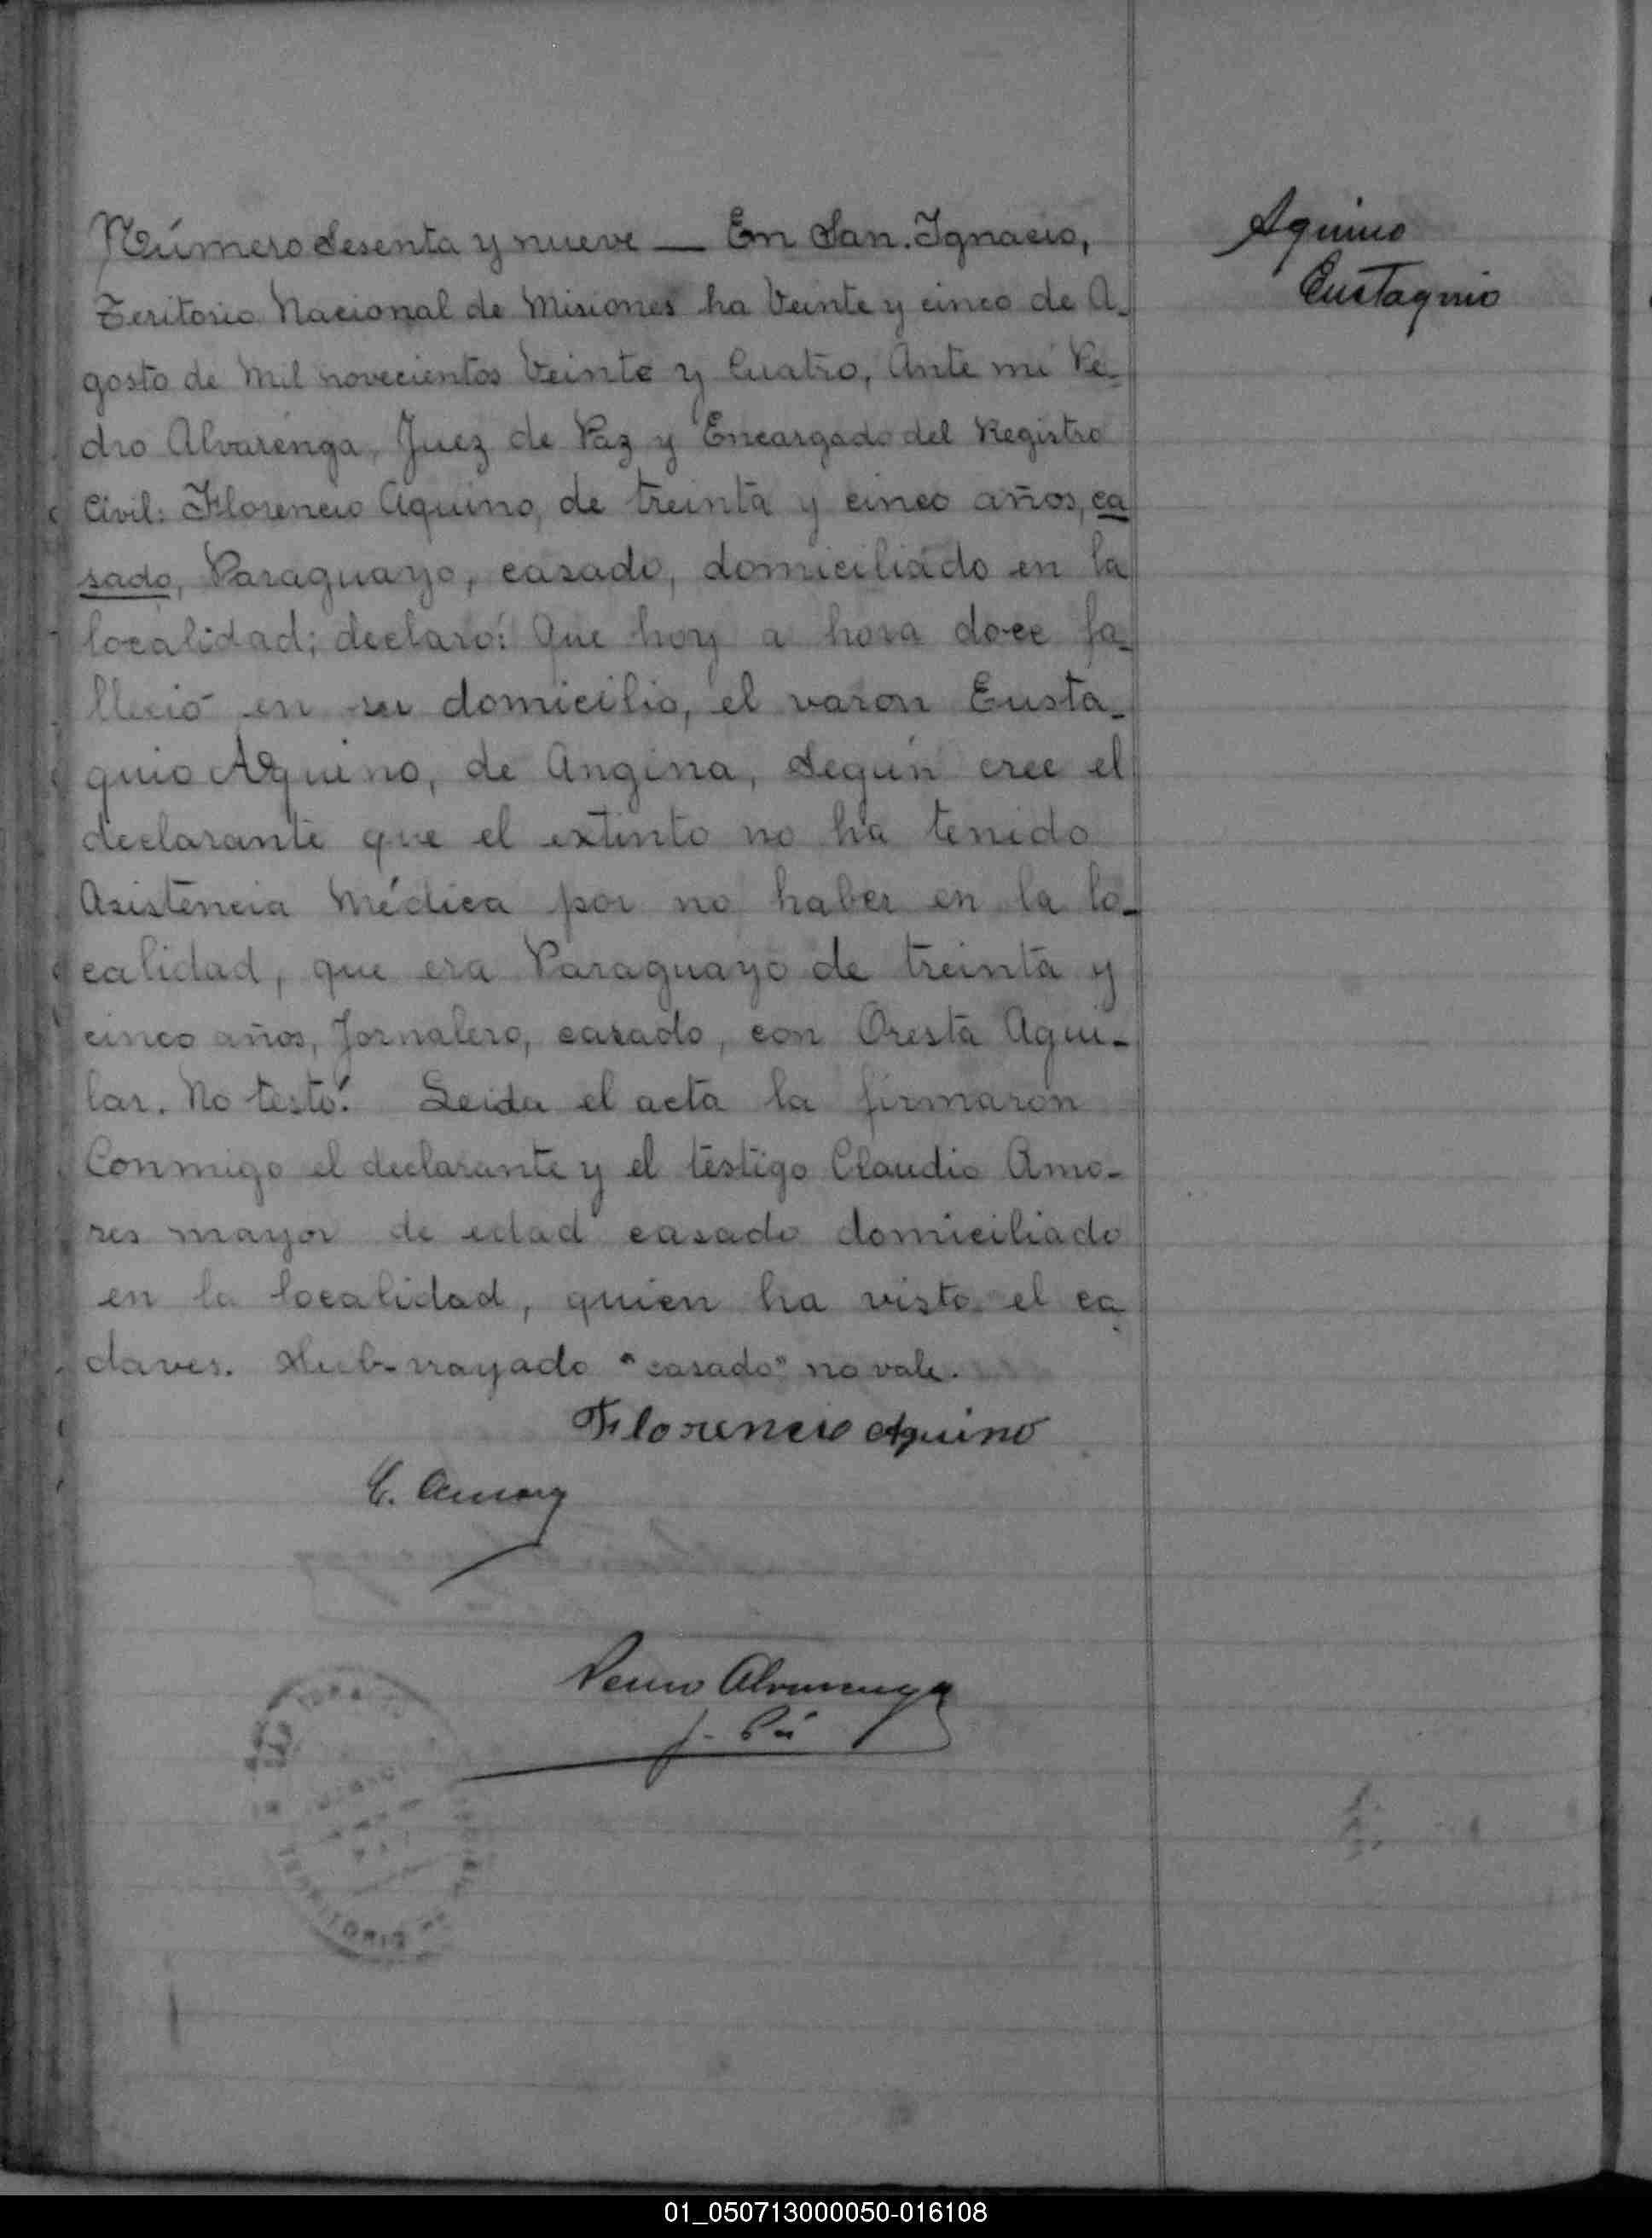 Número Sesenta y nueve — En San. Ignacio,
Teritorio Nacional de Misiones ha Veinte y cinco de A-
gosto de Mil novecientos Veinte y Cuatro, Ante mi Pe-
dro Alvarenga, Juez de Paz y Encargado del Registro
Civil: Florencio Aquino, de treinta y cinco años, ca
sado, Paraguayo, casado, domiciliado en la
localidad; declaró: Que hoy a hora doce fa-
lleció en su domicilio, el varon Eusta-
quio Aquino, de Angina, Según cree el
declarante que el extinto no ha tenido
Asistencia Médica por no haber en la lo-
calidad, que era Paraguayo de treinta y
cinco años, Jornalero, casado, con Oresta Agui-
lar. No testó. Leida el acta la firmaron
Conmigo el declarante y el testigo Claudio Amo-
res mayor de edad casado domiciliado
en la localidad, quien ha visto el ca
daver. Sub-rrayado "casado" no vale.
Florencio Aquino
C. Amores
Pedro Alvarenga
J. Paz
Aquino
Eustaquio
TERRITORIO DE
01_050713000050-016108